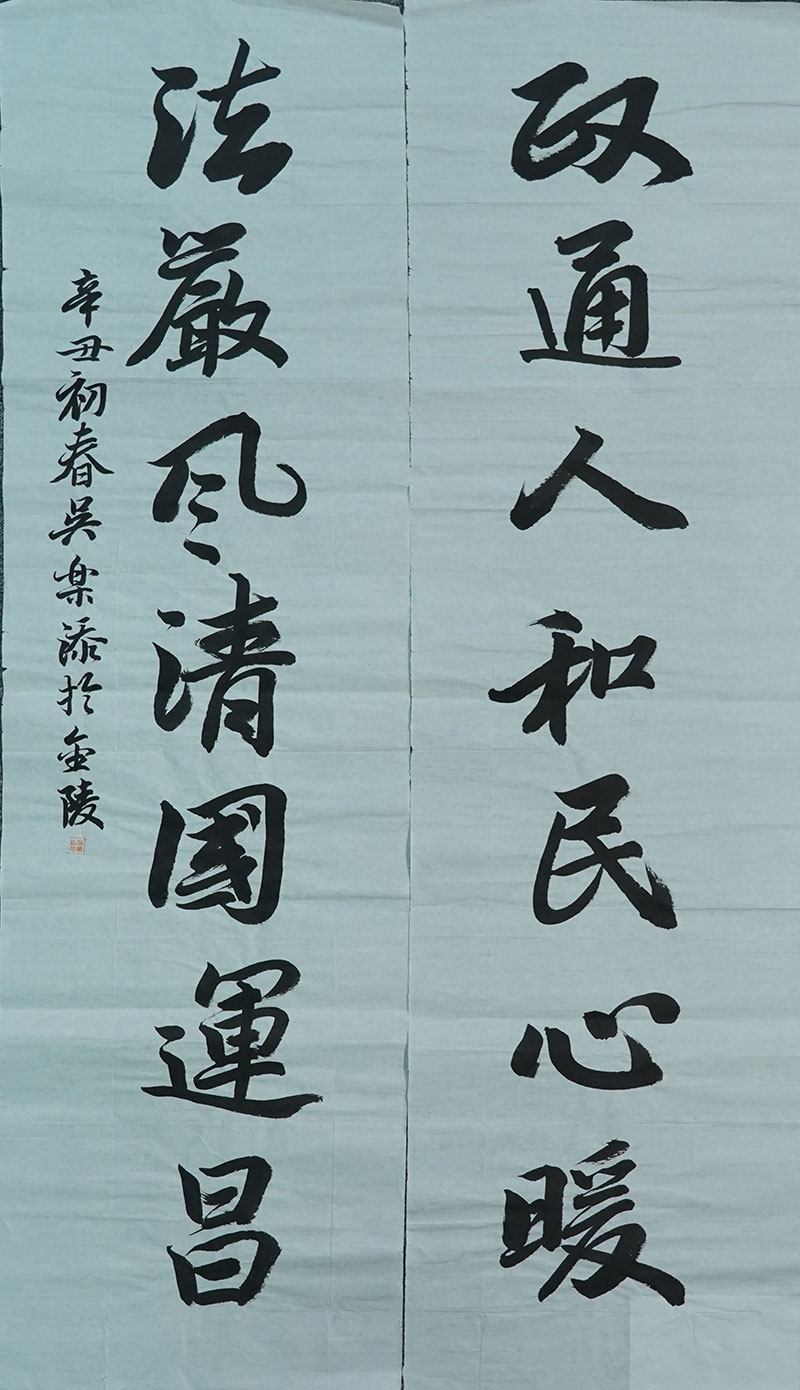 政通人和民心暖
法嚴风清國運昌
辛丑初春吳楽添於金陵